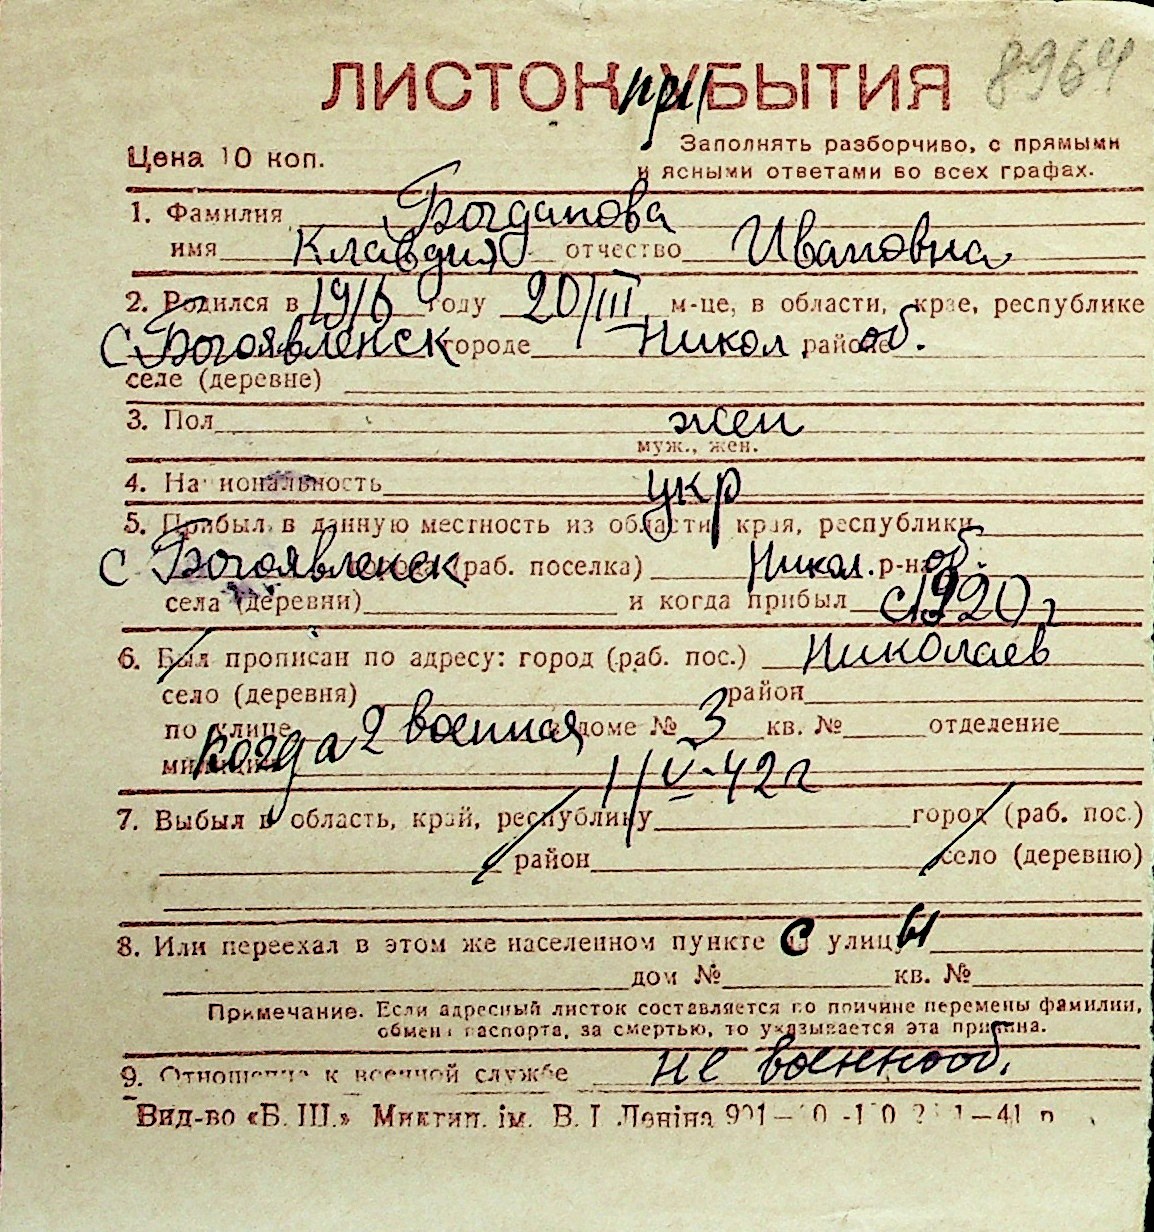 8964
ЛИСТОК при УБЫТИЯ
Цена 10 коп.
Заполнять разборчиво, с прямыми
и ясными ответами во всех графах.
1. Фамилия Богданова
имя Клавдия отчество Ивановна
2. Родился в 1916 году 20/III м-це, в области, крае, республике
с Богоявленск городе Никол районе об.
селе (деревне)
3. Пол жен
муж., жен.
4. Национальность укр
5. Прибыл в данную местность из области, края, республики
с Богоявленск города (раб. поселка) Никол. р-на об.
села (деревни) и когда прибыл с 1920 г
6. Был прописан по адресу: город (раб. пос.) Николаев
село (деревня) район
по улице 2 военная в доме № 3 кв. № отделение
милиции когда 1/V-42 г
7. Выбыл в область, край, республику город (раб. пос.)
район село (деревню)
8. Или переехал в этом же населенном пункте с улицы
дом № кв. №
Примечание. Если адресный листок составляется по причине перемены фамилии,
обмена паспорта, за смертью, то указывается эта причина.
9. Отношение к военной службе не военнооб.
Вид-во «Б. Ш.» Миктип. ім. В. І. Леніна —41 р